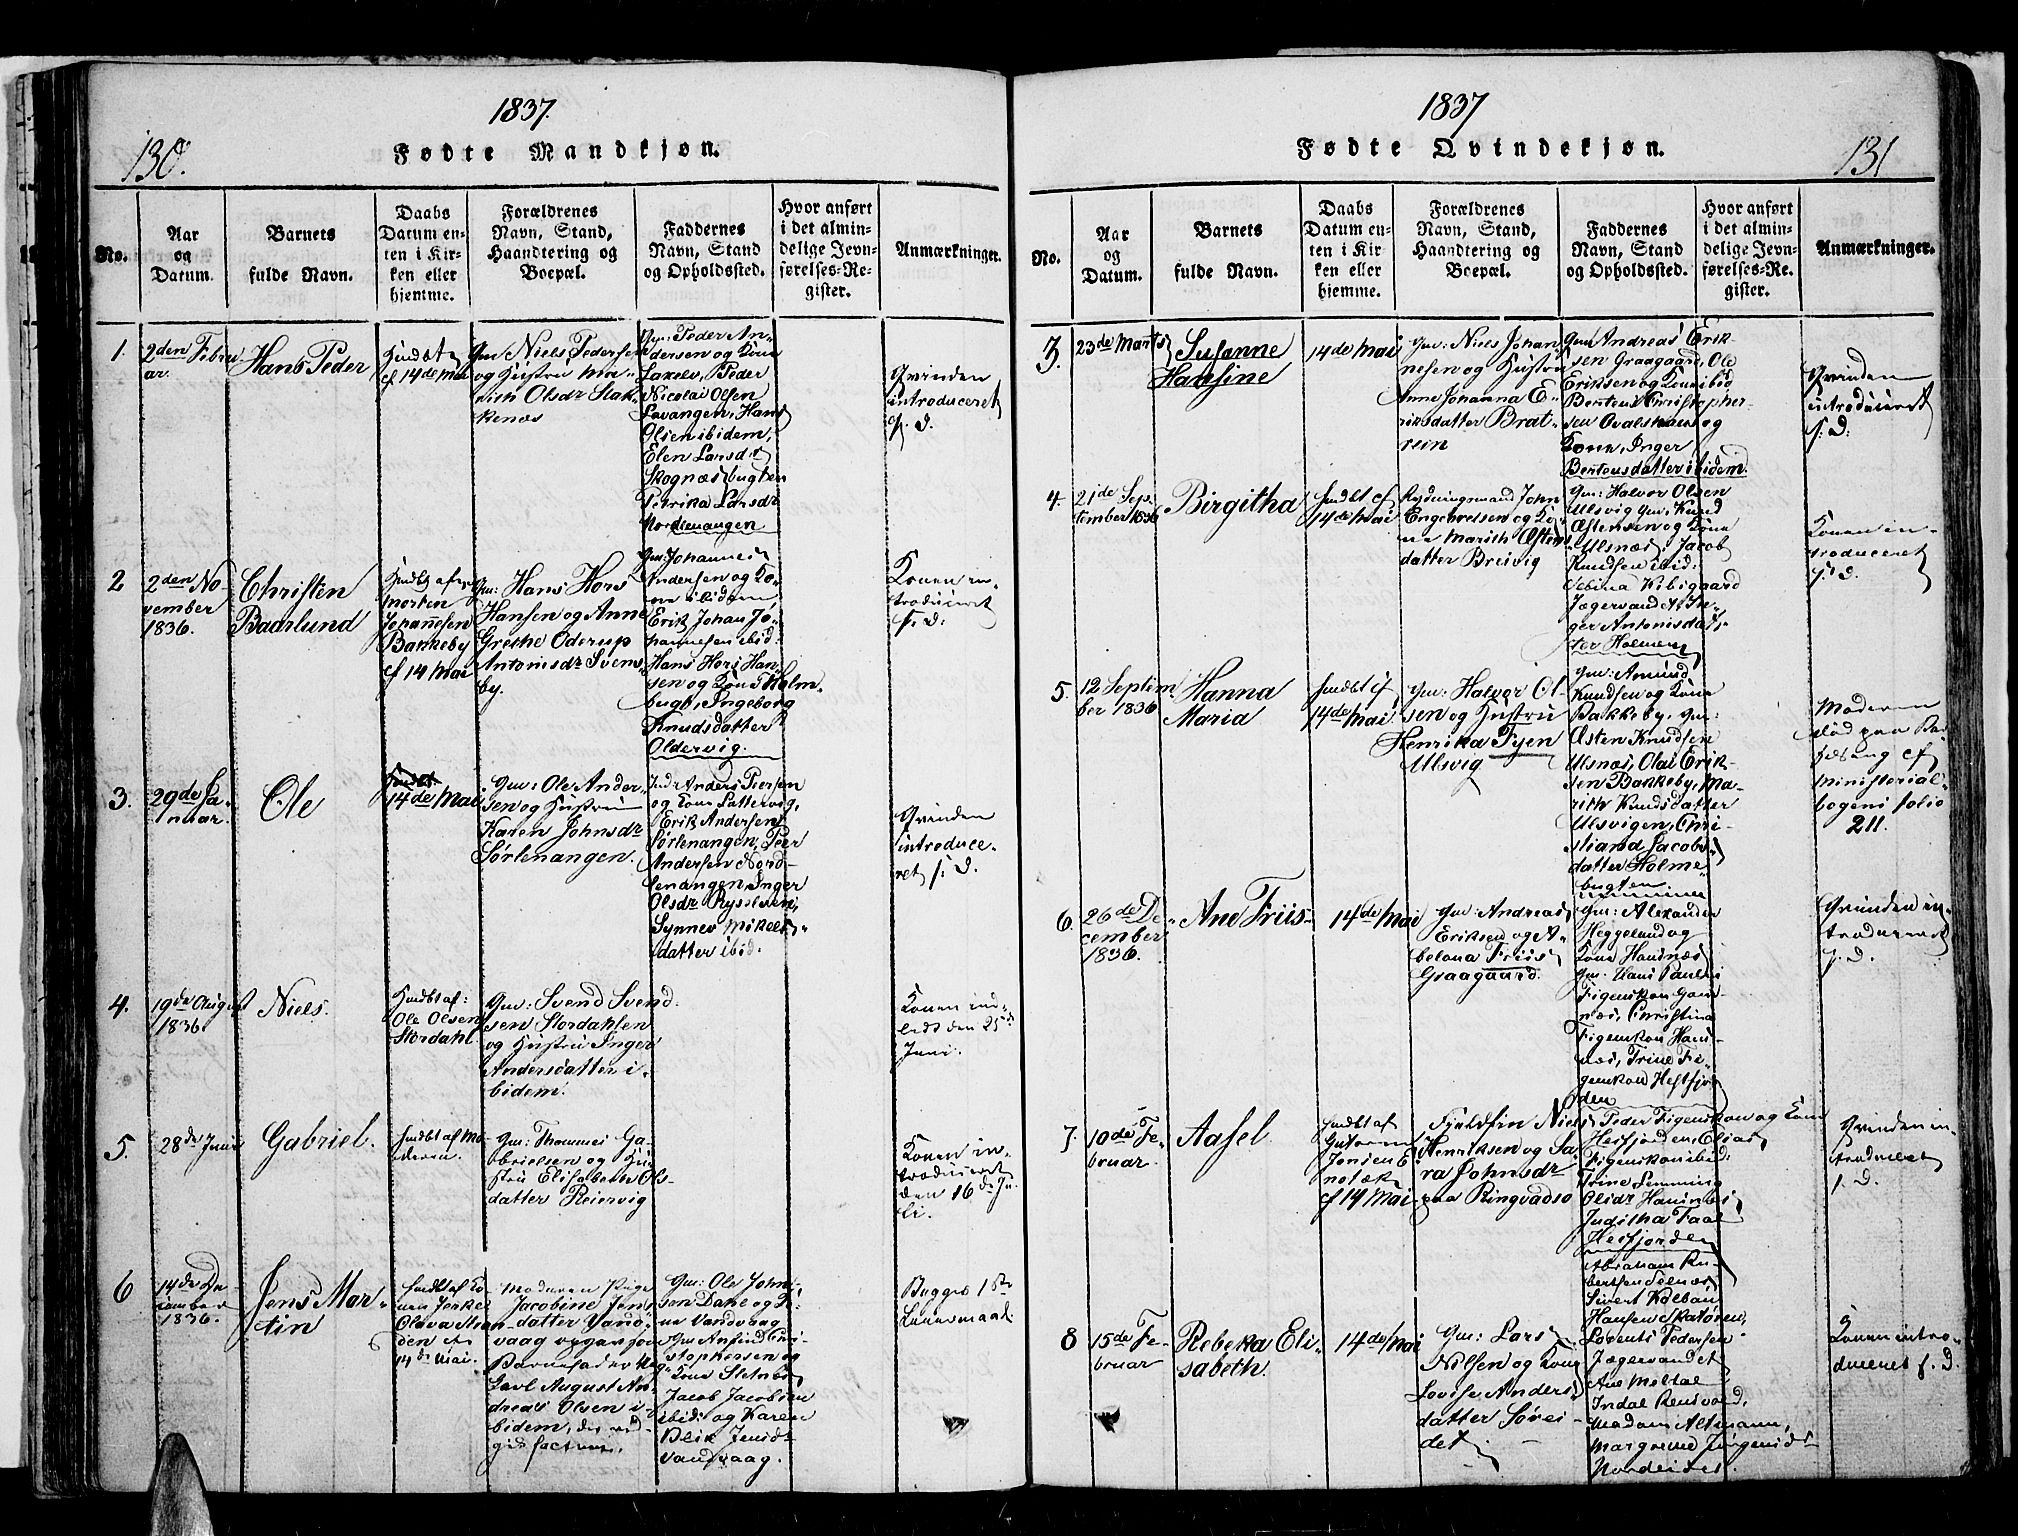 1837.
130.
Fødte Mandkjøn.
No.
Aar
og
Datum.
Barnets
fulde Navn.
Daabs
Datum en-
ten i Kir-
ken eller
hjemme.
Forældrenes
Navn, Stand,
Haandtering og
Boepæl.
Faddernes
Navn, Stand
og Opholdssted.
Hvor anført
i det almin-
delige Jevn-
førelses-Re-
gister.
Anmærkninger.
1.
2den Febru
ar.
Hans Peder
cf 14de Mai
Gm Niels Pedersen
og Hustru Ma-
rith Olsdr Stak-
kenæs
Gm: Peder An-
dersen og Kone
Laxelv, Peder
Nicolai Olsen
Lavangen, Hans
Olsen ibidem,
Elen Larsdr
Skognæsbugten
Petrika Larsdr
Nordlenangen
Qvinden
introduceret
s. D.
2
2den No
vember
1836.
Christen
Baarlund
Hmdbt af
Morten
Johannesen
Bakkeby
cf 14 Mai
Gm: Hans Hors
Hansen og Anne
Grethe Oderup
Antonisdr Svens
by.
Gm: Johannes
Andersen og Ko-
ne ibidem
Erik Johan Jo-
hannesen ibid:
Hans Hors Han-
sen og Kone Holm
bugt, Ingeborg
Knudsdatter
Oldervig.
Konen in-
troduceret
s. D.
3.
29de Ja-
nuar.
Ole
14de Mai
Gm: Ole Ander
sen og Hustru
Karen Johnsdr
Sørlenangen.
Indr Anders Peersen
og Kone Lattervig,
Erik Andersen
Sørlenangen, Peer
Andersen Nord-
lenangen, Inger
Olsdr Rysselven
Synnev Mikels
datter ibid.
Qvinden
introduce-
ret s. D.
4.
19de August
1836.
Niels.
Hmdbt af:
Ole Olsen
Stordahl
Gm: Svend Svend-
sen Stordahlen
og Hustru Inger
Andersdatter i-
bidem.
Konen ind-
ledt den 25de
Juni.
5.
28de Juni
Gabriel.
Hmdbt af Mo-
deren.
Gm: Thommes Ga-
brielsen og Hu-
stru Elisabeth Ols-
datter Reiervig
Konen in-
troduceret
den 16de Ju-
li.
6
14de De
cember
1836.
Jens Mar-
tin
Hmdbt af Ko-
nen
den cf
14de Mai.
Moderen Pige
Jacobine Jens
datter Vand-
vaag
Barnefader
Carl August An-
dreas Olsen i-
bidem,
Gm: Ole Johni-
sen Dahl og Ko-
ne Vandvaag
Gm Amund Chri-
stophersen og
Kone Stetnæs
Jacob Jacobsen
ibid: og Karen
Blix Jensdr
Vandvaag.
Bygges 1ste
1837
131
Fødte Qvindekjøn.
No.
Aar
og
Datum.
Barnets
fulde Navn.
Daabs
Datum en-
ten i Kir-
ken eller
hjemme.
Forældrenes
Navn, Stand,
Haandtering og
Boepæl.
Faddernes
Navn, Stand
og Opholdssted.
Hvor anført
i det almin-
delige Jevn-
førelses-Re-
gister.
Anmærkninger.
3.
23de Marts
Susanne
Hansine
14de Mai
Gm: Niels Johan
nesen og Hustru
Anne Johanna E-
riksdatter Brat-
rein
Gm Andreas Erik-
sen Graagaard, Ole
Eriksen og Kone ibid
Berteus Christopher-
sen Qvalshaus og
Kone, Inger
Berteusdatter ibidem
Qvinden
introduceret
s. D:
4.
21de Sep-
tember 1836
Birgitha
Hmdbt cf
14de Mai
Rydningsmand John
Engebretsen og Ko-
ne Marith Østens
datter Breivig
Gm: Halvor Olsen
Ulsvig Gm: Knud
Østensen og Kone
Ulsnæs: Jacob
Knudsen ibid:
Jægervandet, In-
ger Antonisdat-
ter Holmen
Konen in-
troduceret
s. D.
5.
12 Septem
ber 1836
Hanna
Maria
Hmdbt cf
14de Mai
Gm: Halvor Ol-
sen og Hustru
Henrika Fyen
Ulsvig
Gm: Amund
Knudsen og Kone
Bakkeby, Gm:
Østen Knudsen
Ulsnæs, Olai Erik-
sen Bakkeby, Ma-
rith Knudsdatter
Ulsvigen, Chri-
stiana Jacobs
datter Holme-
bugten
Moderen
død paa Bar
selseng cf
Ministerial-
bogens folio
211.
6.
26de De-
cember
1836.
Ane Friis
14de Mai
Gm: Andreas
Eriksen og A-
belona Friis
Graagaard.
Gm: Alexander
Heggelund og
Kone Hansnæs
Gm: Hans Paulus
Figenskou Gam-
næs, Christina
Figenskou Hans-
næs, Trine Fi-
genskou Hessfjor
den
Qvinden in-
troduceret
s. D.
7.
10de Fe-
bruar.
Aasel
Hmdbt af
Guttorm
Jensen E-
notæk
cf 14 Mai
Fjeldfin Niels
Henriksen og Sa-
ra Johnsdr
paa Ringvadsø
Peder Figenskou og Kone
Hesfjorden, Elias
Figenskou ibid:
Trine Lemming
Olsdr Hansnæs
Juditha Faal
Hesfjorden
Qvinden in-
troduceret
s. D.
8
15de Fe-
bruar
Rebekka Eli
sabeth.
14de Mai
Gm: Lars
Nilsen og Kone
Lovise Anders
datter Sørei-
det
Abraham Ru-
bertsen Sidenæs
Sivert Kolban
Hansen Skatøren,
Lorents Pedersen
Jægervandet
Ane Meldal
Indal Reensvand,
Madam Altmann,
Margrethe Jørgensdr
Nordeidet.
Konen intro-
duceret s. D.